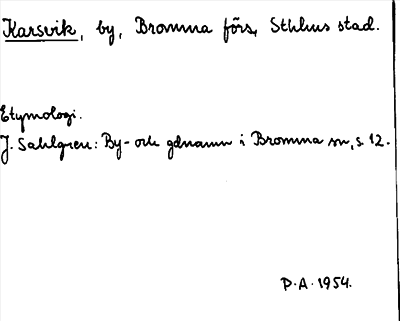 Karsvik, by, Bromma förs, Sthlms stad.
Etymologi.
J. Sahlgren: By- och gdnamn i Bromma sn, s. 12.
P.A. 1954.